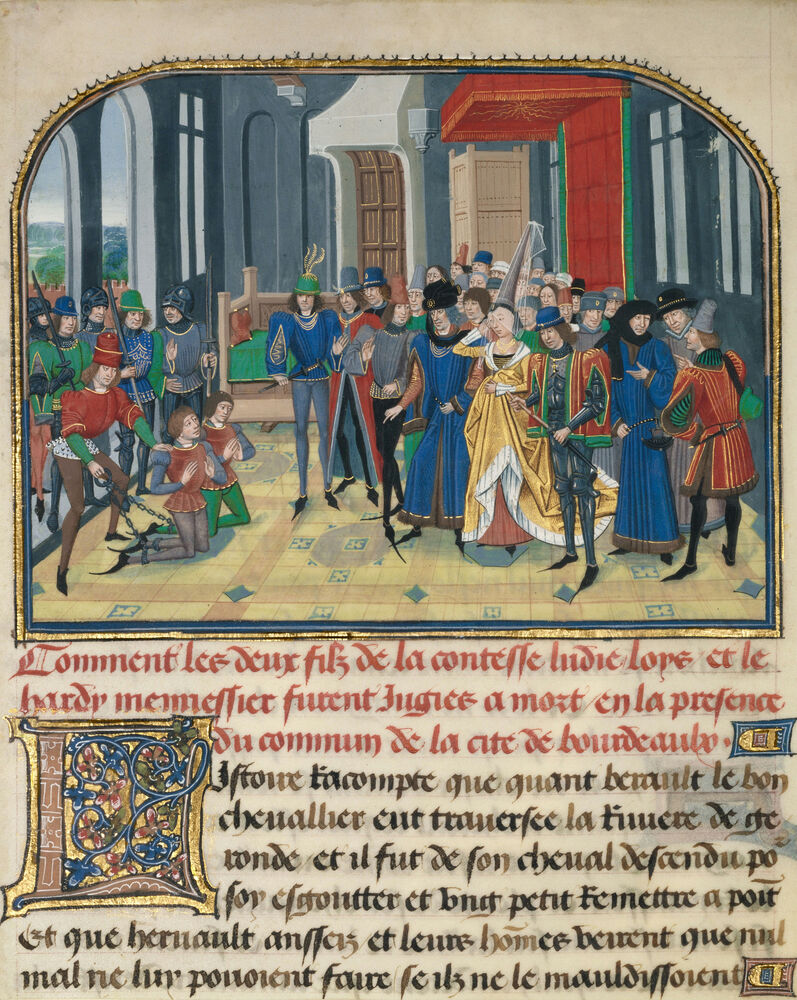 Comment les deux filz de la contesse ludie loys et le
hardy mennessier furent Jugies a mort en la presence
du commun de la cite de bourdeaulx.
Listoire Racompte que quant berault le bon
chevallier eut traversee la Riviere de ge
ronde et il fut de son cheval descendu po
soy esgoutter et ung petit Remettre a poit
Et que hervault ansseiz et leurs homes veirent que nul
mal ne luy povoient faire se ilz ne le mauldissoient